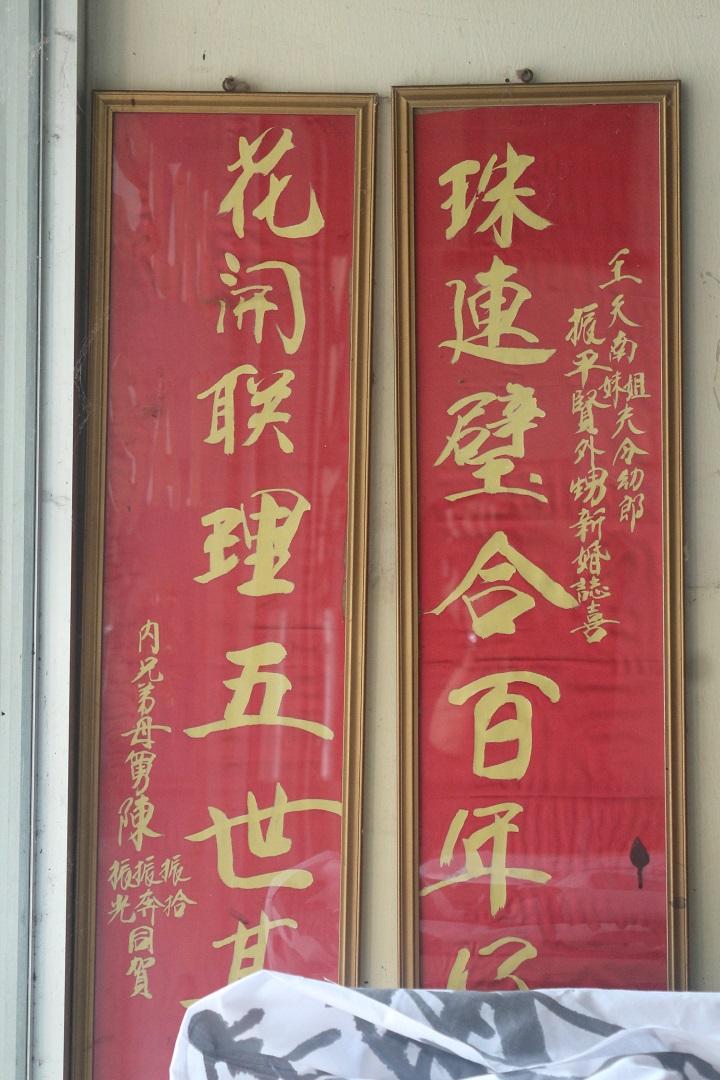 王天南姐妹夫令幼郎
振平賢外甥新婚誌喜
珠連璧合百年
花開联理五世其
内兄弟母舅陳振拾振奔振光同賀